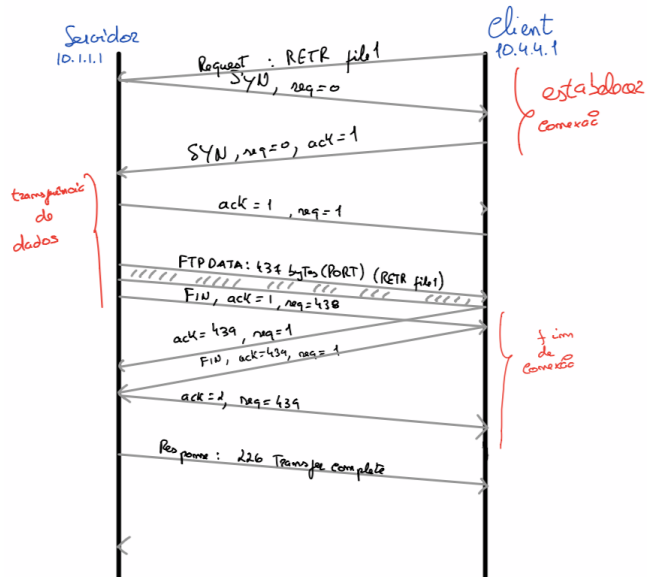 Servidor
10.1.1.1
Client
10.4.4.1
Request : RETR file1
SYN, seq=0
estabelecer
conexão
SYN, seq=0, ack=1
transferência
de
dados
ack = 1, seq=1
FTP DATA: 437 bytes (PORT) (RETR file1)
FIN, ack=1, seq=438
ack=439, seq=1
FIN, ack=439, seq=1
fim
de
conexão
ack=2, seq=439
Response: 226 Transfer complete